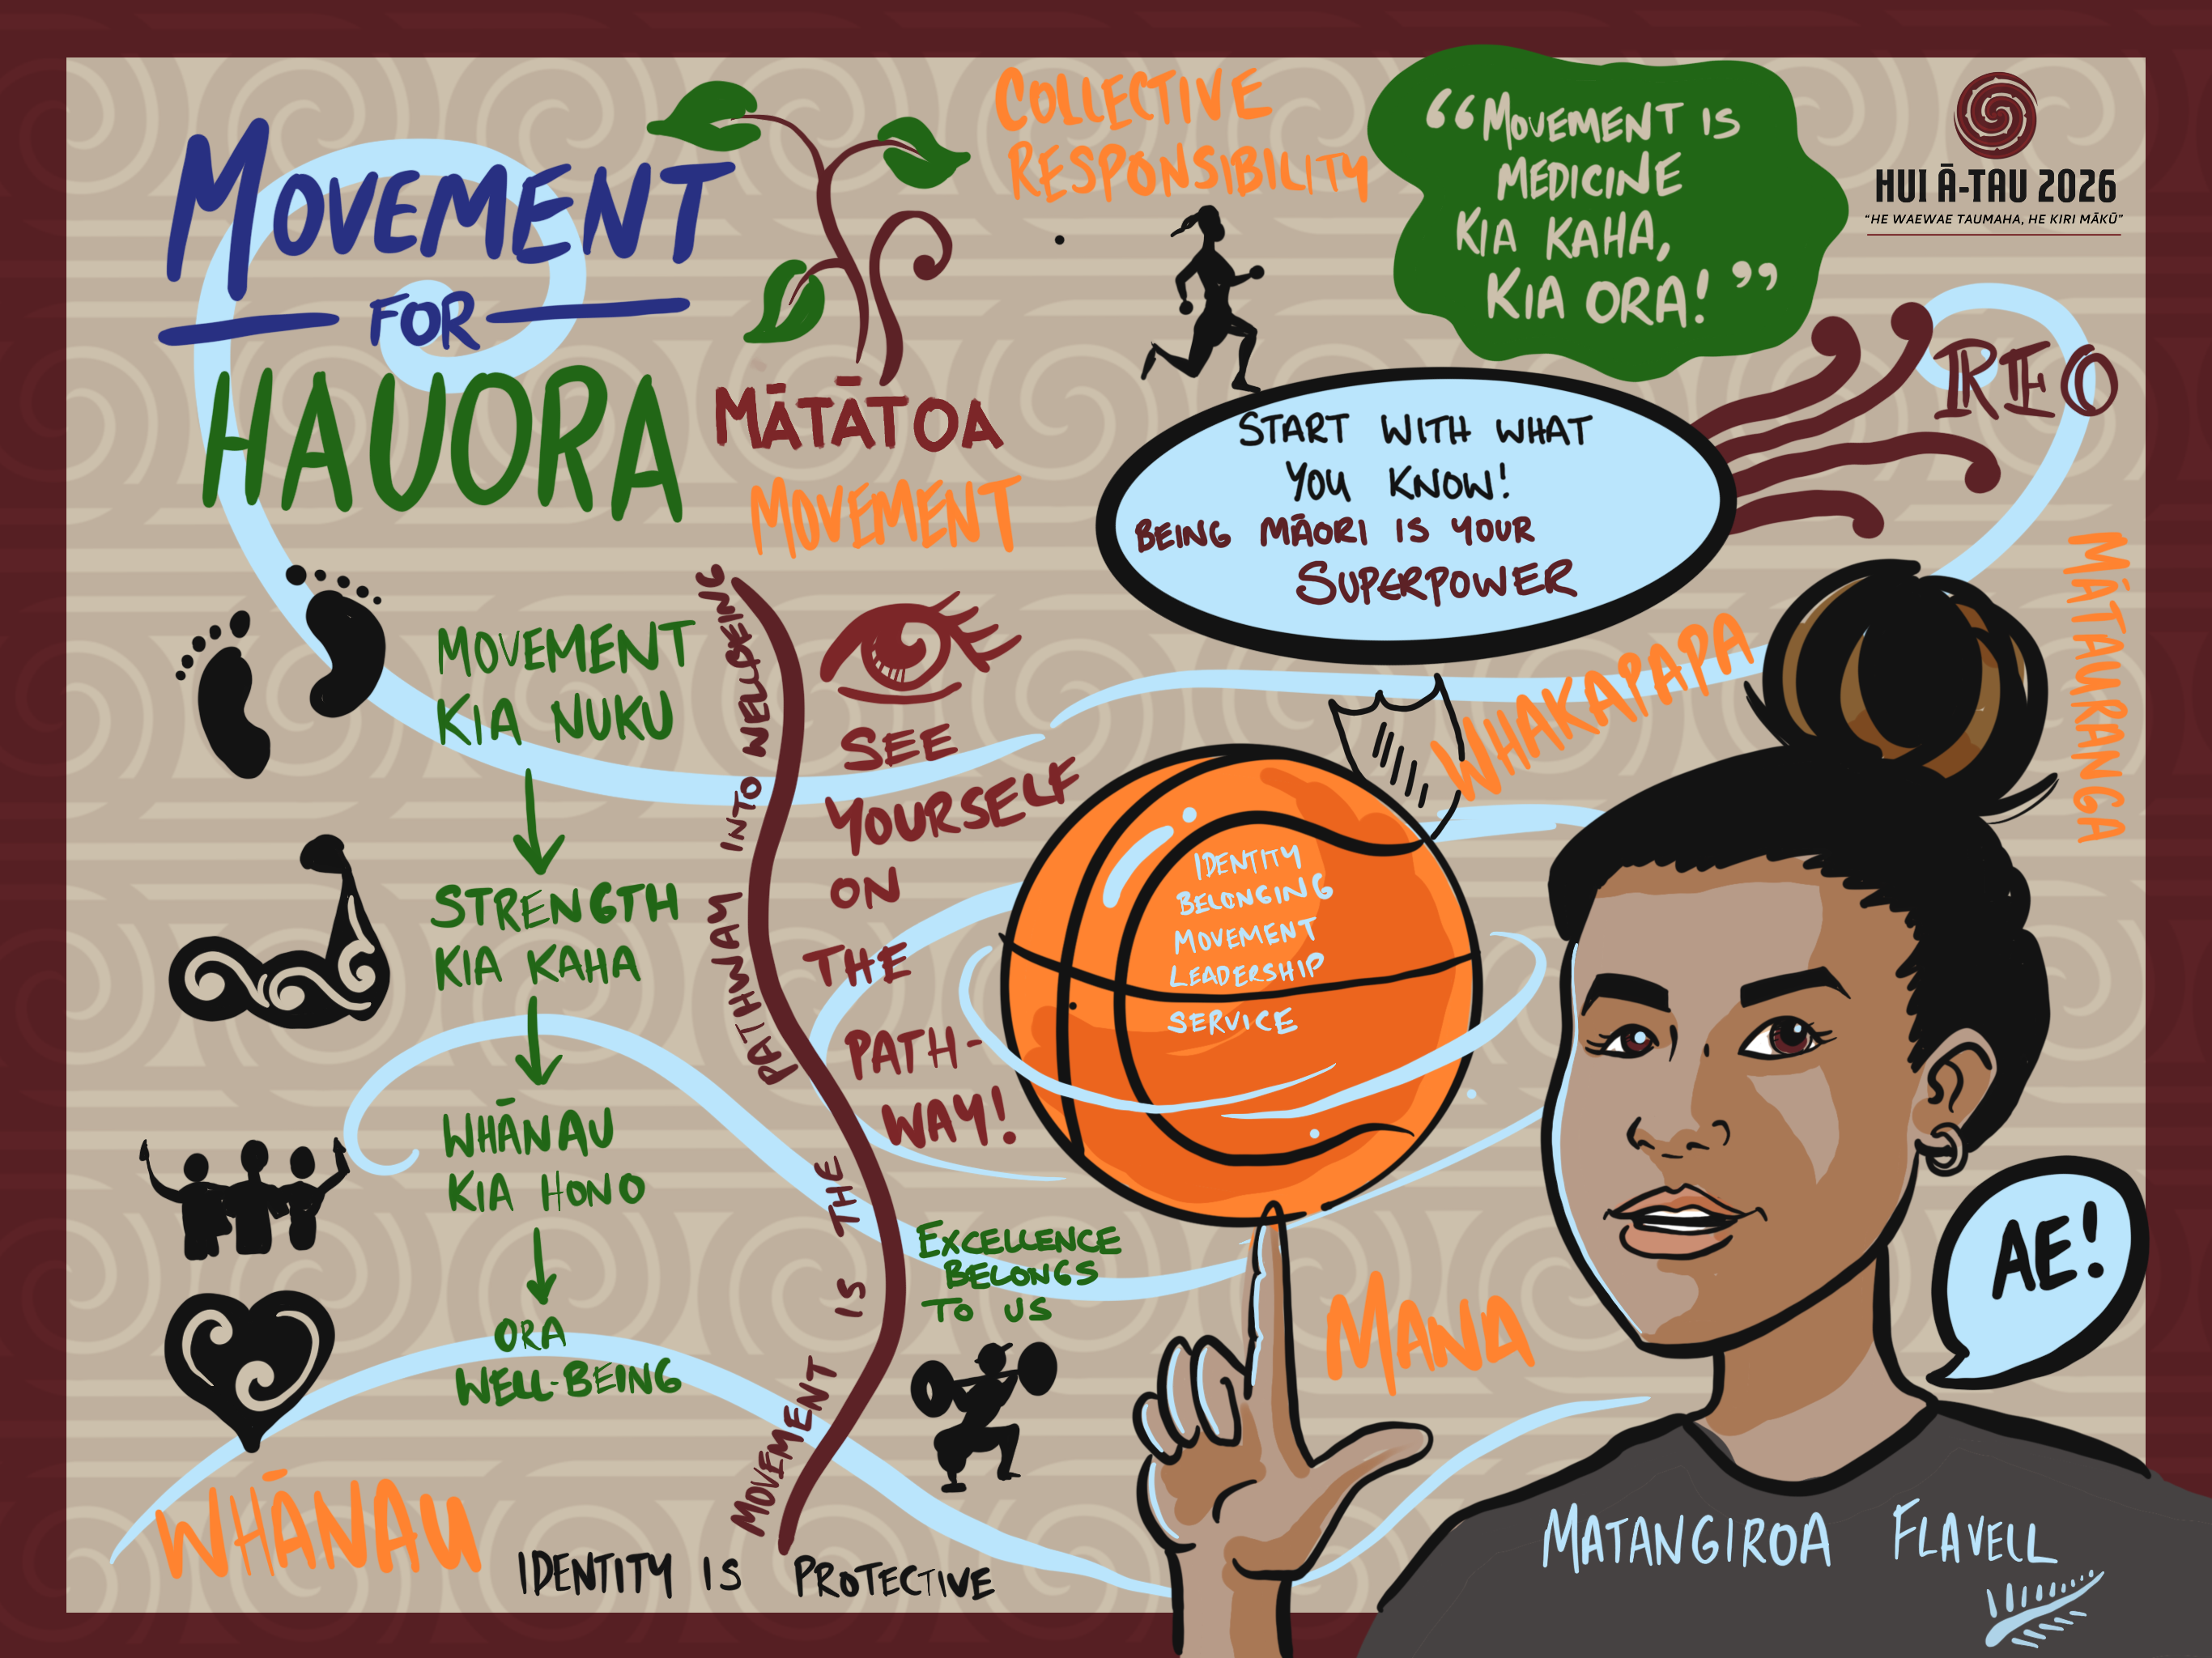 MOVEMENT
FOR
HAUORA
MĀTĀTOA
MOVEMENT
COLLECTIVE
RESPONSIBILITY
“MOVEMENT IS
MEDICINE
KIA KAHA,
KIA ORA!”
HUI Ā-TAU 2026
“HE WAEWAE TAUMAHA, HE KIRI MĀKŪ”
START WITH WHAT
YOU KNOW!
BEING MĀORI IS YOUR
SUPERPOWER
REO
MĀTAURANGA
WHAKAPAPA
MOVEMENT
KIA NUKU
STRENGTH
KIA KAHA
WHĀNAU
KIA HONO
ORA
WELL-BEING
MOVEMENT IS THE PATHWAY INTO WELLBEING
SEE
YOURSELF
ON
THE
PATH-
WAY!
IDENTITY
BELONGING
MOVEMENT
LEADERSHIP
SERVICE
EXCELLENCE
BELONGS
TO US
MANA
AE!
WHĀNAU
IDENTITY IS PROTECTIVE
MATANGIROA FLAVELL